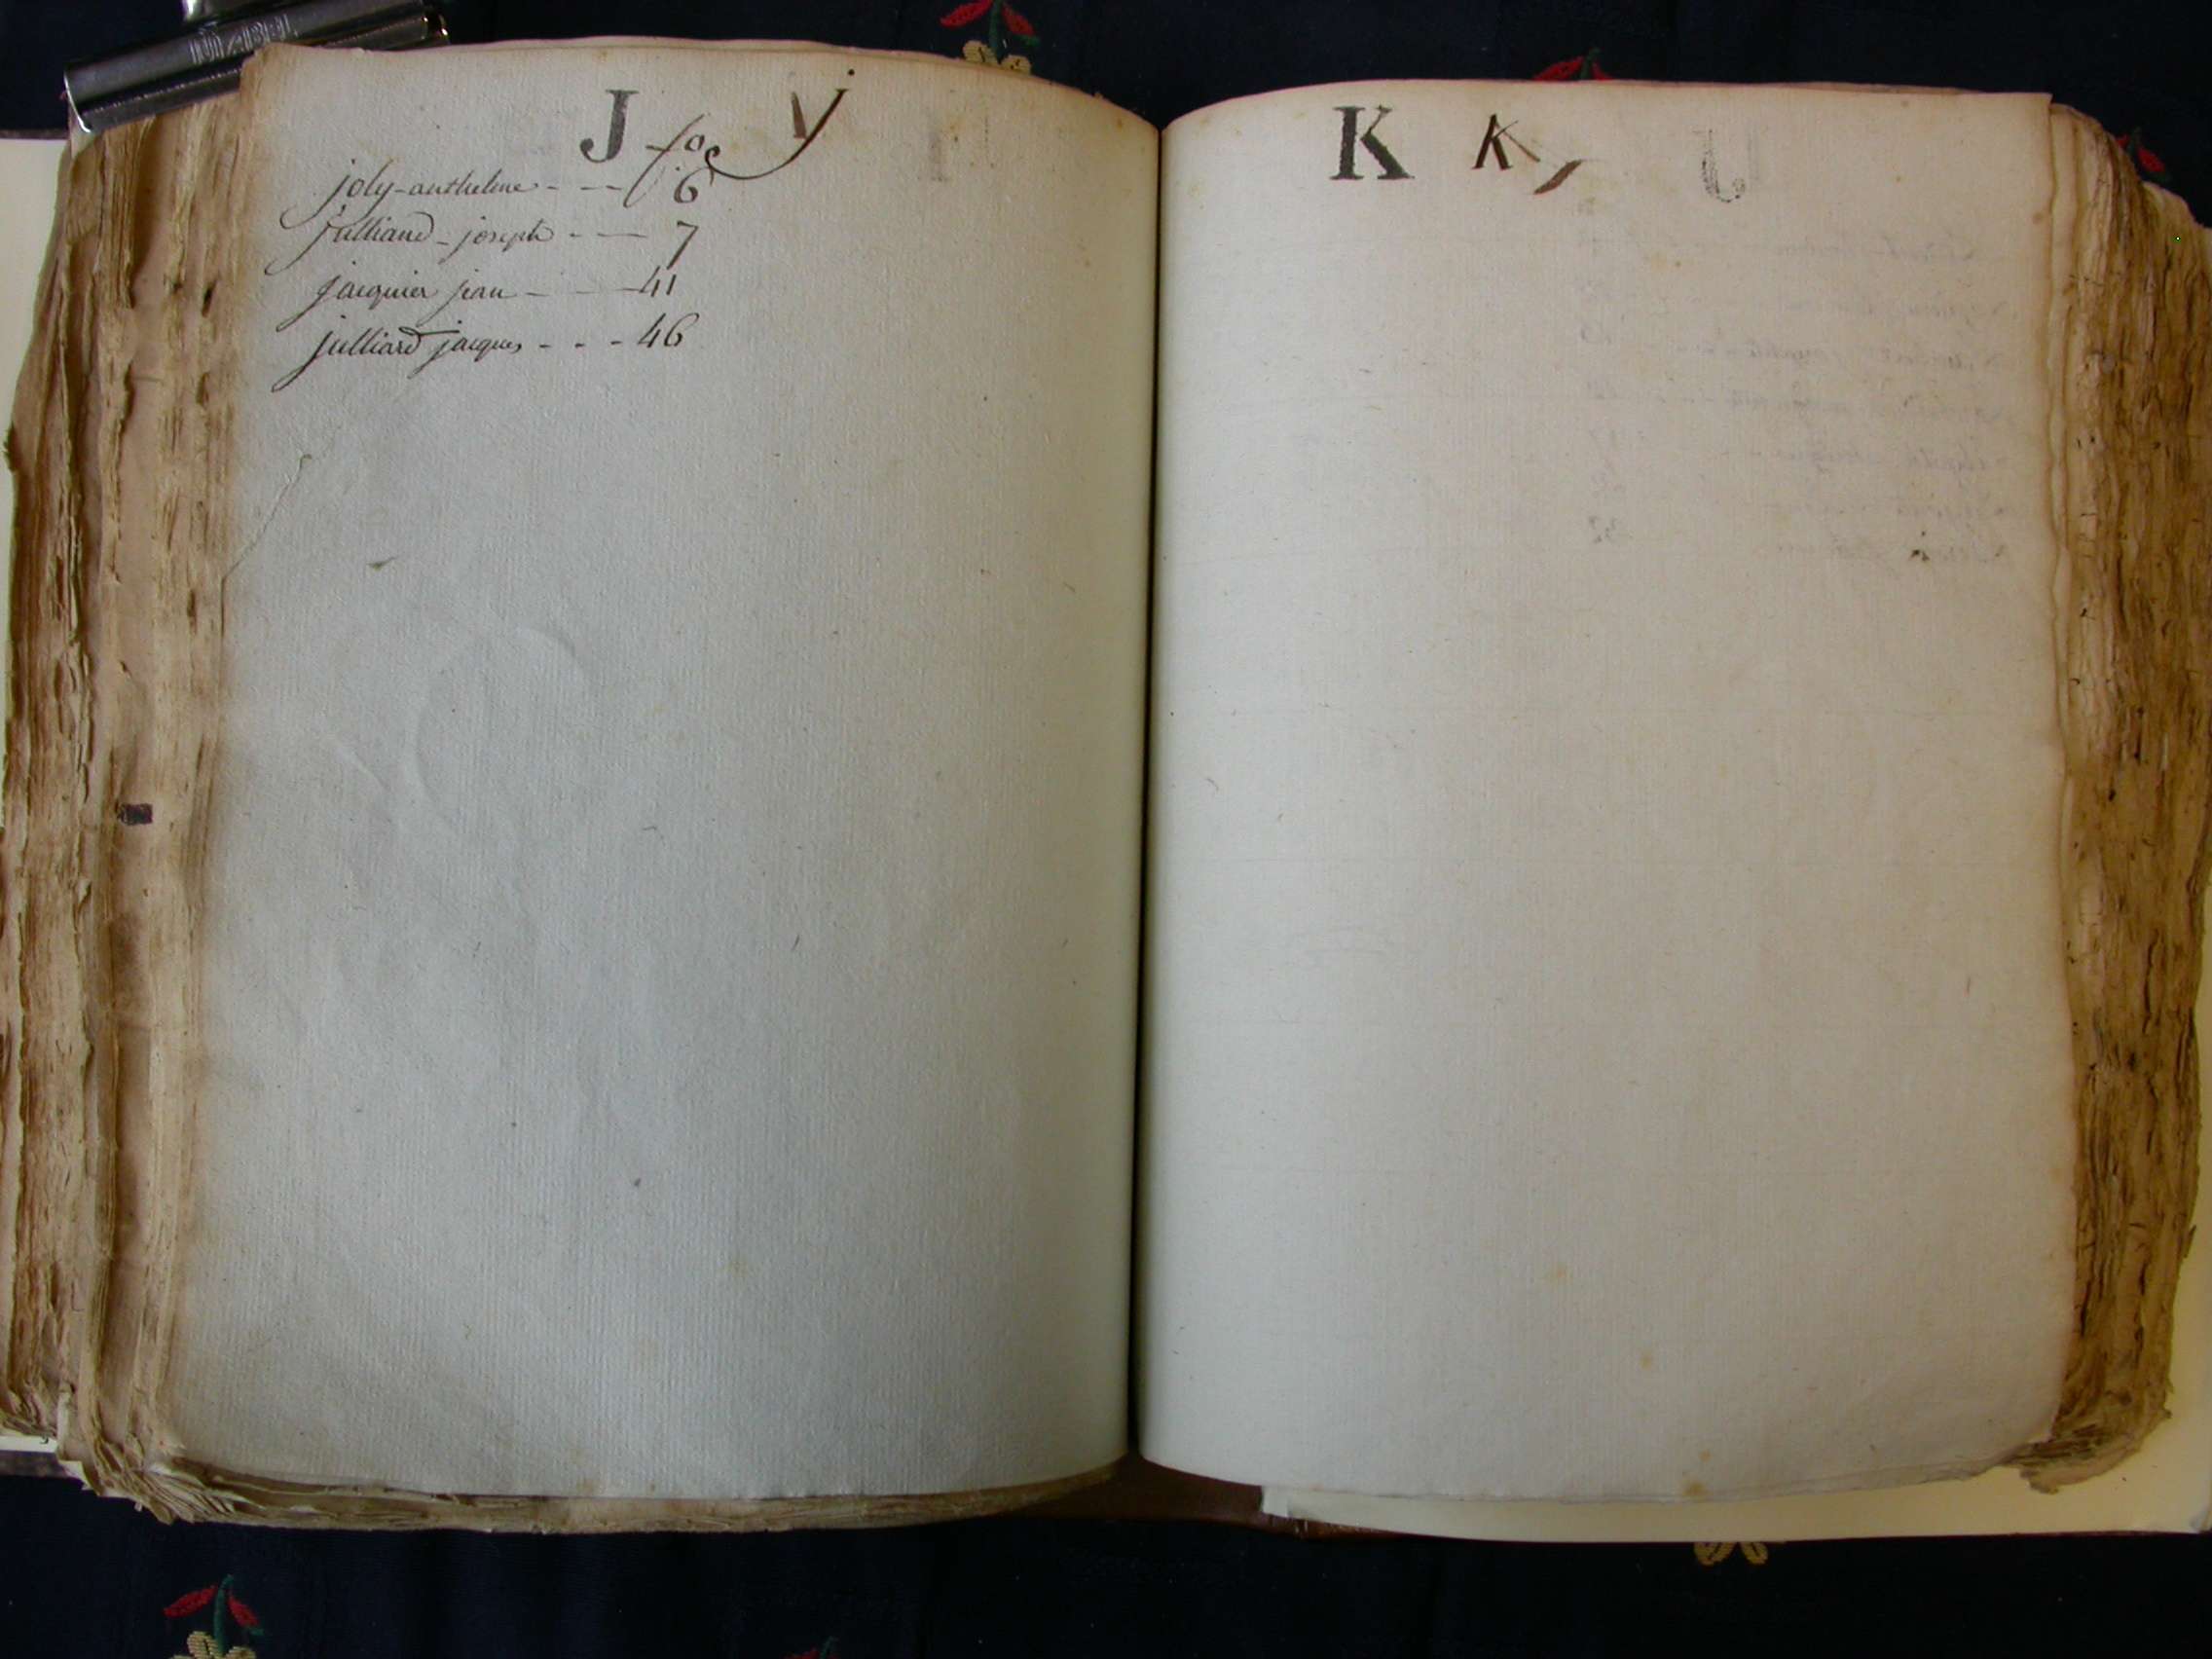 J j
fos
joly-anthelme - - - 6
julliand - joseph - - - 7
jacquier jean - - - 41
julliard jacques - - - 46
K K